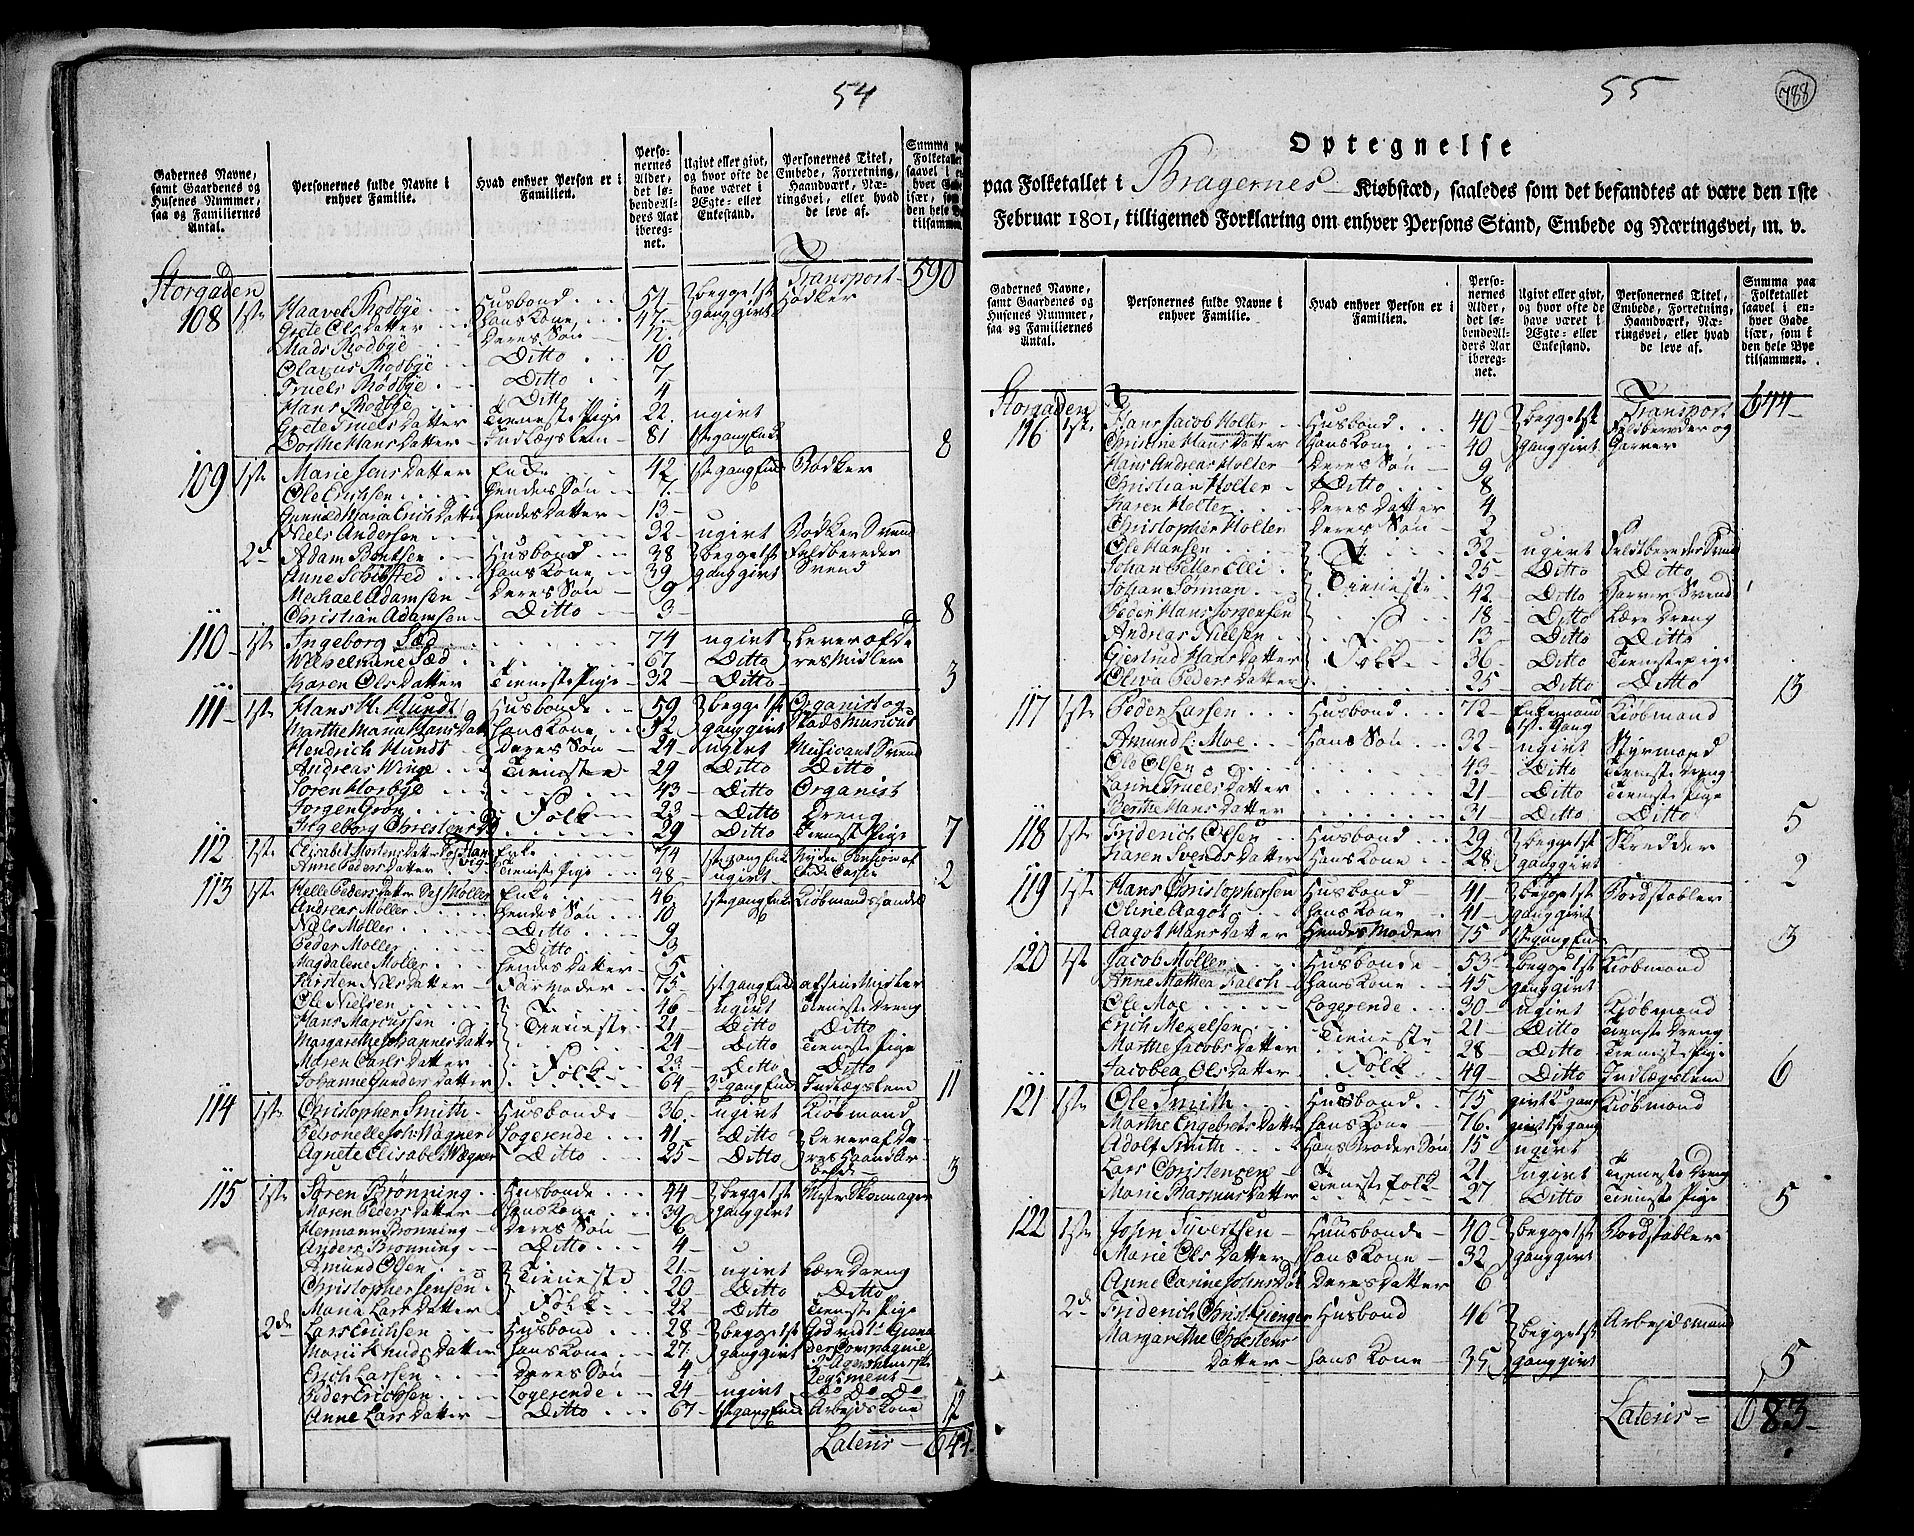 54
Gadernes Navne, samt Gaardenes og Husenes Nummer, saa og Familiernes Antal.
Personernes fulde Navne i enhver Familie.
Hvad enhver Person er i Familien.
Personernes Alder, det løbende Alders Aar iberegnet.
Ugivt eller givt, og hvor ofte de have været i Ægte- eller Enkestand.
Personernes Titel, Embede, Forretning, Haandværk, Næringsvei, eller hvad de leve af.
Summa paa Folketallet
Transport 590
Storgaden
108 1ste Haavel Rodbye Husbond 54 begge 1ste Hødker
Grete Olsdatter Hans Kone 47 gang givt
Mads Rodbye Deres Søn 12
Olaus Rodbye Ditto 10
Truels Rodbye Ditto 7
Hans Rodbye Ditto 4
Grete Truels Datter Tieneste Pige 22 ugivt
Dorthe Hans Datter Indlægslem 81 1ste gang Enke 8
109 1ste Marie Jens Datter Enke 42 1ste gang Enke Bødker
Ole Erichsen Hendes Søn 7
Gunild Maria Erich Datter Hendes Datter 13
Niels Andersen 32 ugivt Bødker Svend
2de Adam Bentsen Husbond 38 begge 1ste Feldbereder
Anne Schibsted Hans Kone 39 gang givt Svend
Michael Adamsen Deres Søn 9
Christian Adamsen Ditto 3 8
110 1ste Ingeborg Sæd 74 ugivt Lever af De
Wilhelmine Sæd 67 Ditto res Midlen
Karen Ols Datter Tieneste Pige 32 Ditto 3
111 1ste Hans H. Hundt Husbonde 59 begge 1ste Organist og
Marthe Maria Hans Dat Hans Kone 52 gang givt Stads Musicus
Hendrich Hundt Deres Søn 24 ugivt Musicant Svend
Andreas Winge Tieneste 29 Ditto Ditto
Søren Horbye 43 Ditto Organist
Jørgen Grøn Folk 22 Ditto Dreng
Ingeborg Chrestens D 29 Ditto Tieneste Pige 7
112 1ste Elisabet Mortens Datter Enke 74 1ste gang Enke Nyder Pension af
Anne Peders Datter Tieneste Pige 38 ugivt 2
113 1ste Helle Peders Datter Møller Enke 46 1ste gang Enke Kiøbmands Handel
Andreas Møller Hendes Søn 10
Niels Møller Ditto 9
Peder Møller Ditto 3
Magdalene Møller Hendes Datter 5
Kirsten Nils Datter Farmoder 75 1ste gang Enke af sine Midler
Ole Nielsen 46 ugivt Tieneste Dreng
Hans Marcussen Tieneste 21 Ditto Ditto
Margarethe Johannes Datter 24 Ditto Tieneste Pige
Maren Carls Datter Folk 23 Ditto Ditto
Johanne Gunders Datter 64 3 gang Enke Indlægslem 11
114 1ste Christopher Smith Husbonde 36 ugivt Kiøbmand
Petronelle Joh: Wagner Logerende 41 Ditto Lever af De
Agnete Elisabet Wagner Ditto 25 Ditto res Haand Ar
beide 3
115 1ste Søren Brønning Husbonde 44 begge 1ste Mester Skomager
Maren Peders Datter Hans Kone 39 gang givt
Hermann Brønning Deres Søn 6
Anders Brønning Ditto 4
Amund Olsen Tieneste 21 ugivt Lære Dreng
Christopher Jensen 20 Ditto Ditto
Maria Lars Datter Folk 22 Ditto Tieneste Pige
2de Lars Erichsen Husbond 28 begge 1ste
Marie Knuds Datter Hans Kone 27 gang givt
Erich Larsen Deres Søn 4 Regiment
Peder Erichsen Logerende 24 ugivt Do Do Do
Anne Lars Datter Ditto 67 1ste gang Enke Arbejds Kone 12
Lateris 644
55
788
Optegnelse
paa Folketallet i Bragernes Kiøbstæd, saaledes som det befandtes at være den 1ste
Februar 1801, tilligemed Forklaring om enhver Persons Stand, Embede og Næringsvei, m. v.
Gadernes Navne, samt Gaardenes og Husenes Nummer, saa og Familiernes Antal.
Personernes fulde Navne i enhver Familie.
Hvad enhver Person er i Familien.
Personernes Alder, det løbende Alders Aar iberegnet.
Ugivt eller givt, og hvor ofte de have været i Ægte- eller Enkestand.
Personernes Titel, Embede, Forretning, Haandværk, Næringsvei, eller hvad de leve af.
Summa paa Folketallet saavel i enhver Gade især, som i den hele Bye tilsammen.
Transport 644
Storgaden
116 1ste Hans Jacob Holter Husbond 40 begge 1ste Feldbereder og
Christine Hans Datter Hans Kone 40 gang givt Garver
Hans Andreas Holter Deres Søn 9
Christian Holter Ditto 8
Karen Holter Deres Datter 4
Christopher Holter Deres Søn 2
Ole Hansen 32 ugivt Feldtbereder Svend
Johan Petter Elli 25 Ditto Ditto
Johan Sørman Tieneste 42 Ditto Garver Svend
Peder Hans Jørgensen 18 Ditto Lære Dreng
Andreas Nielsen 13 Ditto Ditto
Giertrud Hans Datter Folk 36 Ditto Tieneste pige
Oliva Peders Datter 25 Ditto Ditto 13
117 1ste Peder Larsen Husbond 72 Enkemand 1st Gang Kiøbmand
Amund L: Moe Hans Søn 32 ugivt Styrmand
Ole Olsen 43 Ditto Tieneste Dreng
Karine Truels Datter 21 Ditto Tieneste Pige
Berthe Hans Datter 31 Ditto Ditto 5
118 1ste Friderich Olsen Husbond 29 begge 1ste Skredder
Karen Svends Datter Hans Kone 28 gang givt 2
119 1ste Hans Christophersen Husbond 41 begge 1ste Bordstabler
Oline Aagot Hans Kone 41 gang givt
Aagot Hans Datter Hendes Moder 75 1ste gang Enke 3
120 1ste Jacob Møller Husbonde 53 begge 1ste Kiøbmand
Anne Mattea Falch Hans Kone 45 gang givt
Ole Moe Logerende 30 ugivt Kiøbmand
Erich Mekelsen Tieneste 21 Ditto Tieneste Dreng
Marthe Jacobs Datter 28 Ditto Tieneste Pige
Jacobea Ols Datter Folk 49 Ditto Indlægslem 6
121 1ste Ole Smith Husbond 75 givt 2 gang Kiøbmand
Marthe Engebrets Datter Hans Kone 76 givt 1ste gang
Adolf Smith Hans Broder Søn 15 ugivt
Lars Christensen Tieneste Folk 21 ugivt Tieneste Dreng
Marie Rasmus Datter 27 Ditto Tieneste Pige 5
122 1ste John Syvertsen Huusbonde 40 begge 1ste Bordstabler
Marie Ols Datter Hans Kone 32 gang givt
Anne Carine Johns Dat Deres Datter 6
2de Friderich Christ: Gienger Husbond 46 begge 1st Arbejdsmand
Margarethe Chrestens
Datter Hans Kone 35 gang givt 5
Lateris 683